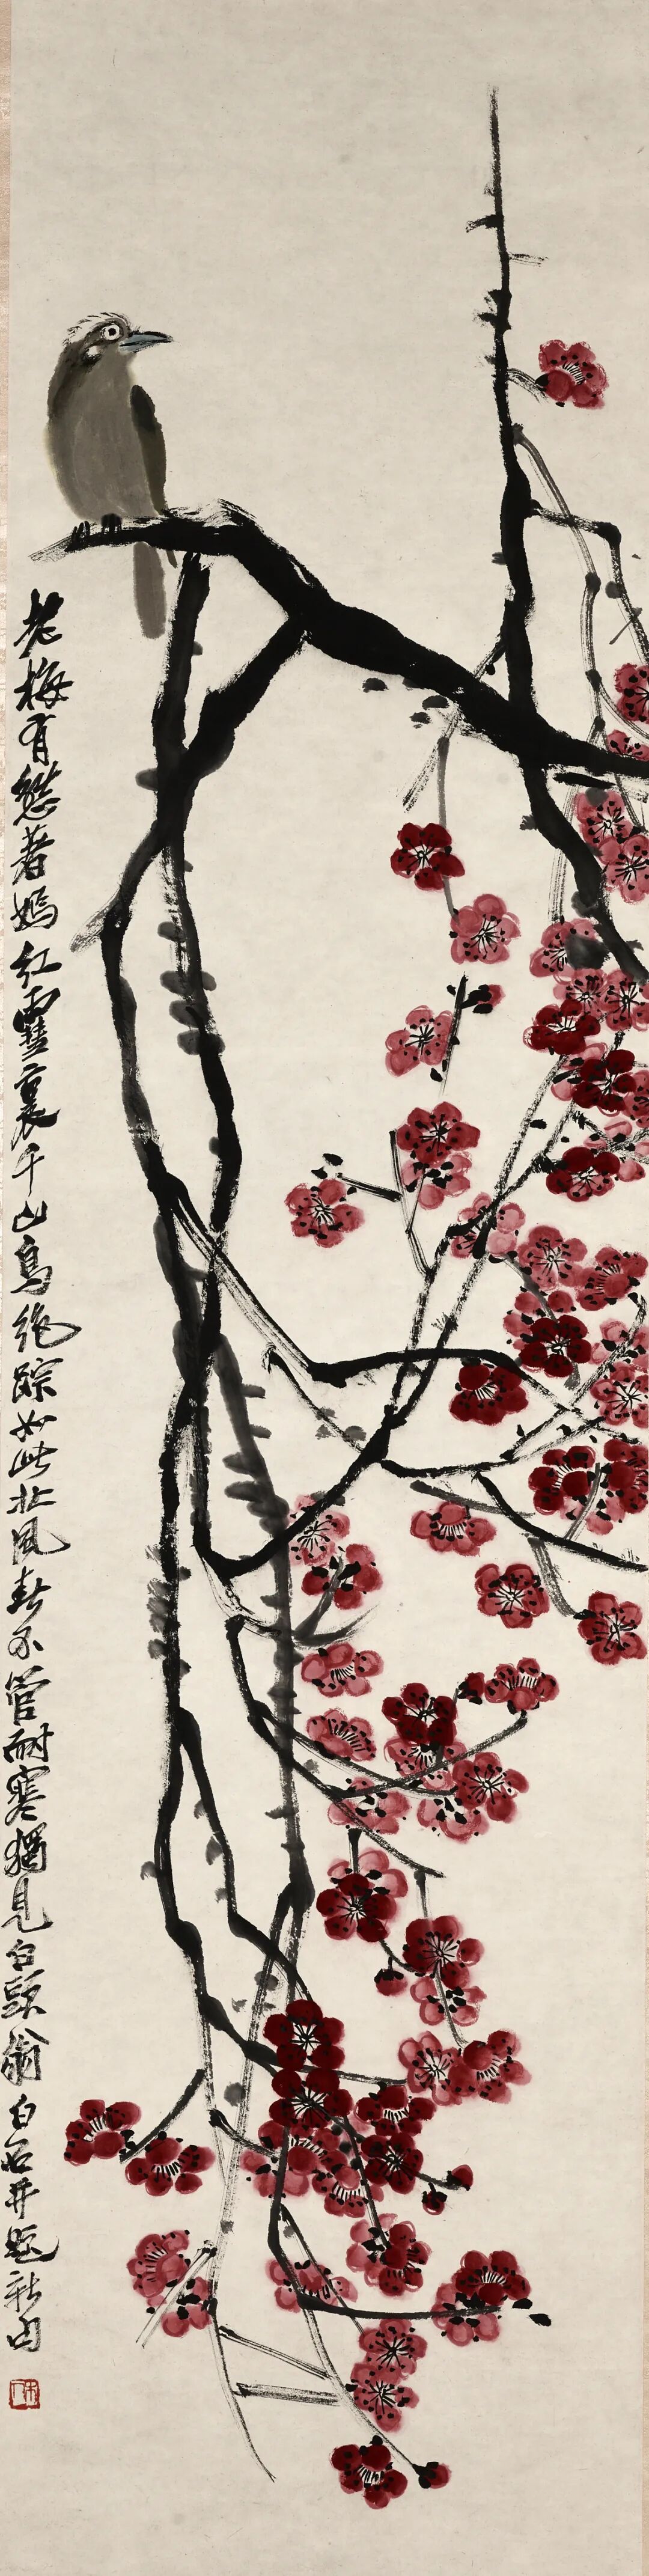 老梅有愁著嫣紅雪裏千山鳥絕踪如此北風新不管耐寒獨見白頭翁白石并題新句
木人